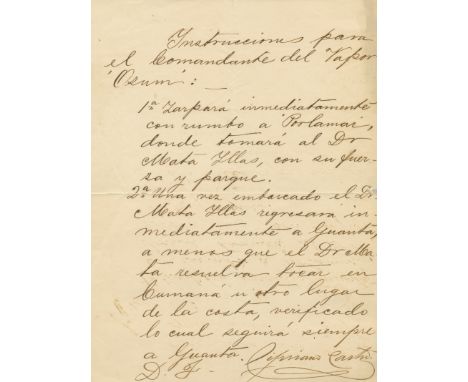 Instrucciones para
el Comandante del Vapor
"Osum":-
1ª Zarpará inmediatamente
con rumbo a Porlamar,
donde tomará al Dr
Mata Yllas, con su fuer-
sa y parque.
2ª Una vez embarcado el Dr.
Mata Yllas regresara in-
mediatamente a Guanta,
a menos que el Dr Ma-
ta resuelva tocar en
Cumaná u otro lugar
de la costa, verificado
lo cual seguirá siempre
a Guanta. Cipriano Castro
D. F.